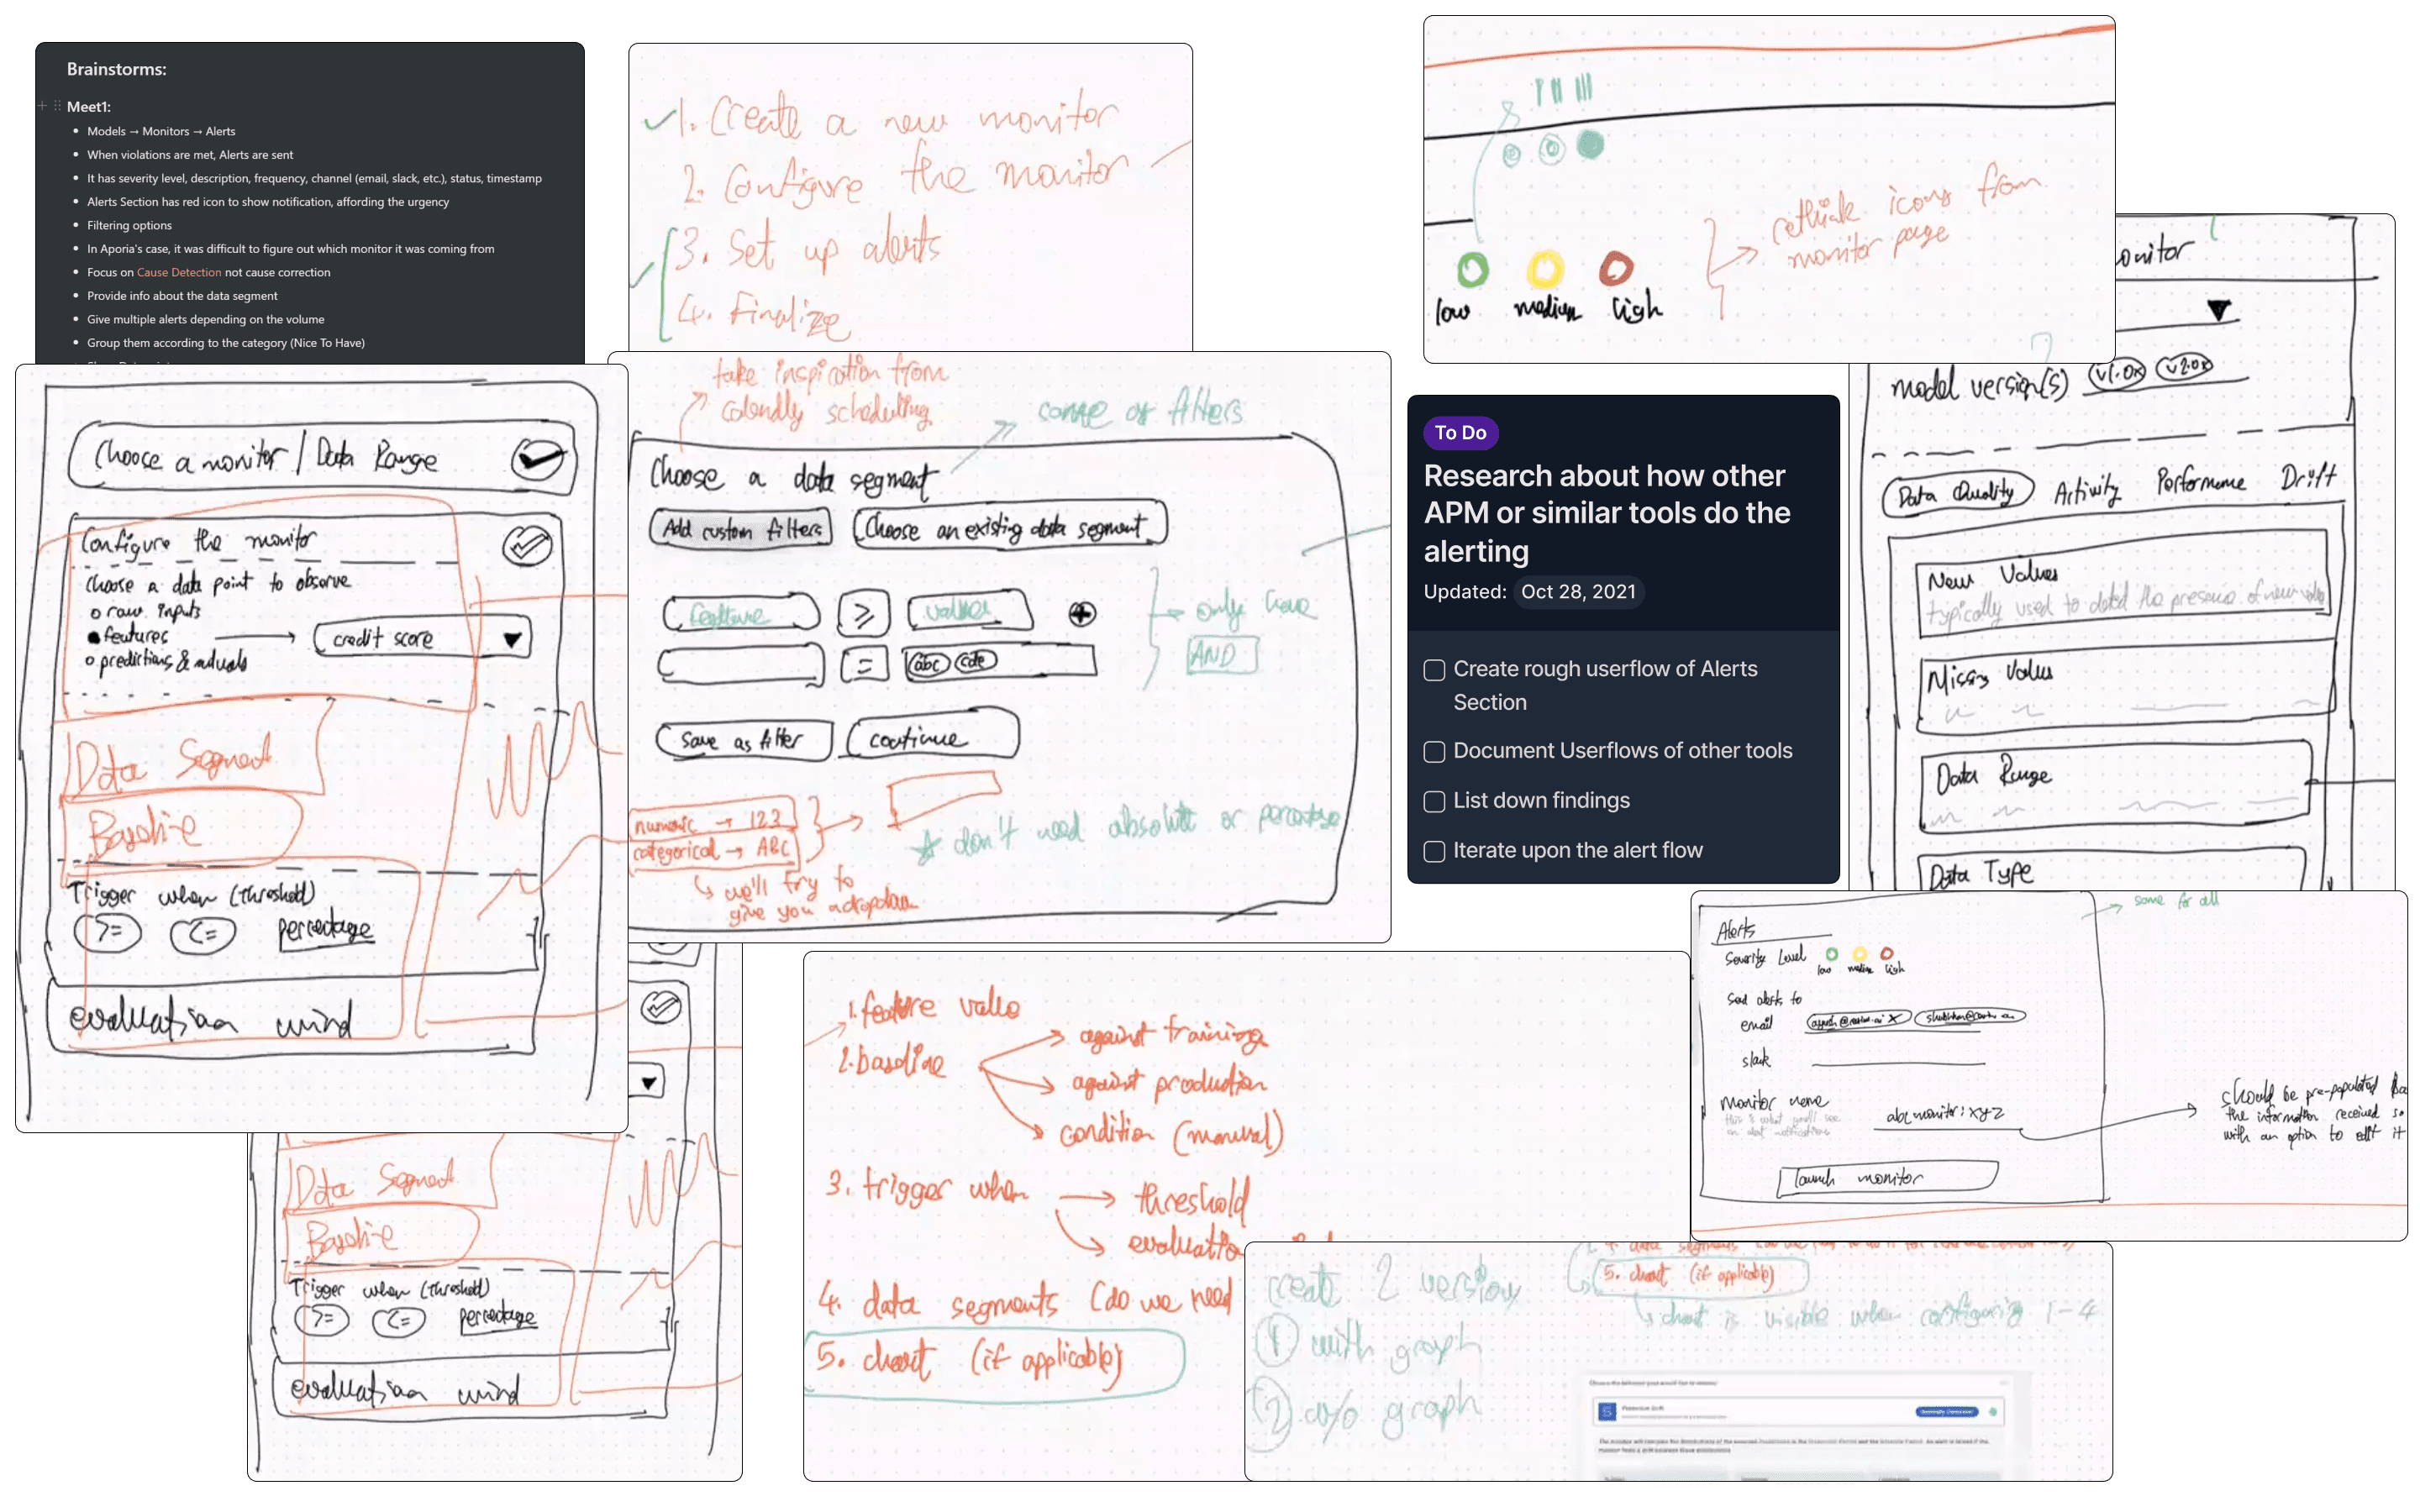 Brainstorms:
Meet1:
Models → Monitors → Alerts
When violations are met, Alerts are sent
It has severity level, description, frequency, channel (email, slack, etc.), status, timestamp
Alerts Section has red icon to show notification, affording the urgency
Filtering options
In Aporia's case, it was difficult to figure out which monitor it was coming from
Focus on Cause Detection not cause correction
Provide info about the data segment
Give multiple alerts depending on the volume
Group them according to the category (Nice To Have)
1. Create a new monitor
2. Configure the monitor
3. Set up alerts
4. Finalize
low medium high
rethink icons from
monitor page
onitor
model version(s) v1.0x v2.0x
Data Quality Activity Performance Drift
New Values
typically used to detect the presence of new
Missing Values
Data Range
Data Type
Choose a monitor / Data Range
Configure the monitor
choose a data point to observe
raw inputs
features → credit score
predictions & actuals
Data Segment
Baseline
Trigger when (threshold)
>= <= percentage
evaluation wind
take inspiration from
calendly scheduling
some as filters
Choose a data segment
Add custom filters Choose an existing data segment
feature ≥ value
= abc cde
only have
AND
Save as filter continue
numeric → 123
categorical → ABC
we'll try to
give you a dropdown
don't need absolute or percentage
To Do
Research about how other
APM or similar tools do the
alerting
Updated: Oct 28, 2021
Create rough userflow of Alerts
Section
Document Userflows of other tools
List down findings
Iterate upon the alert flow
Data Segment
Baseline
Trigger when (threshold)
>= <= percentage
evaluation wind
1. feature value
2. baseline
against training
against production
condition (manual)
3. trigger when → threshold
evaluation
4. data segments (do we need
5. chart (if applicable)
same for all
Alerts
Severity Level
low medium high
Send alerts to
email
slack
monitor name
this is what you'll see
in alert notifications
abc monitor: xyz
should be pre-populated
the information received so
with an option to edit it
launch monitor
create 2 version
1 with graph
2 w/o graph
5. chart (if applicable)
chart is visible when configuring 1-4